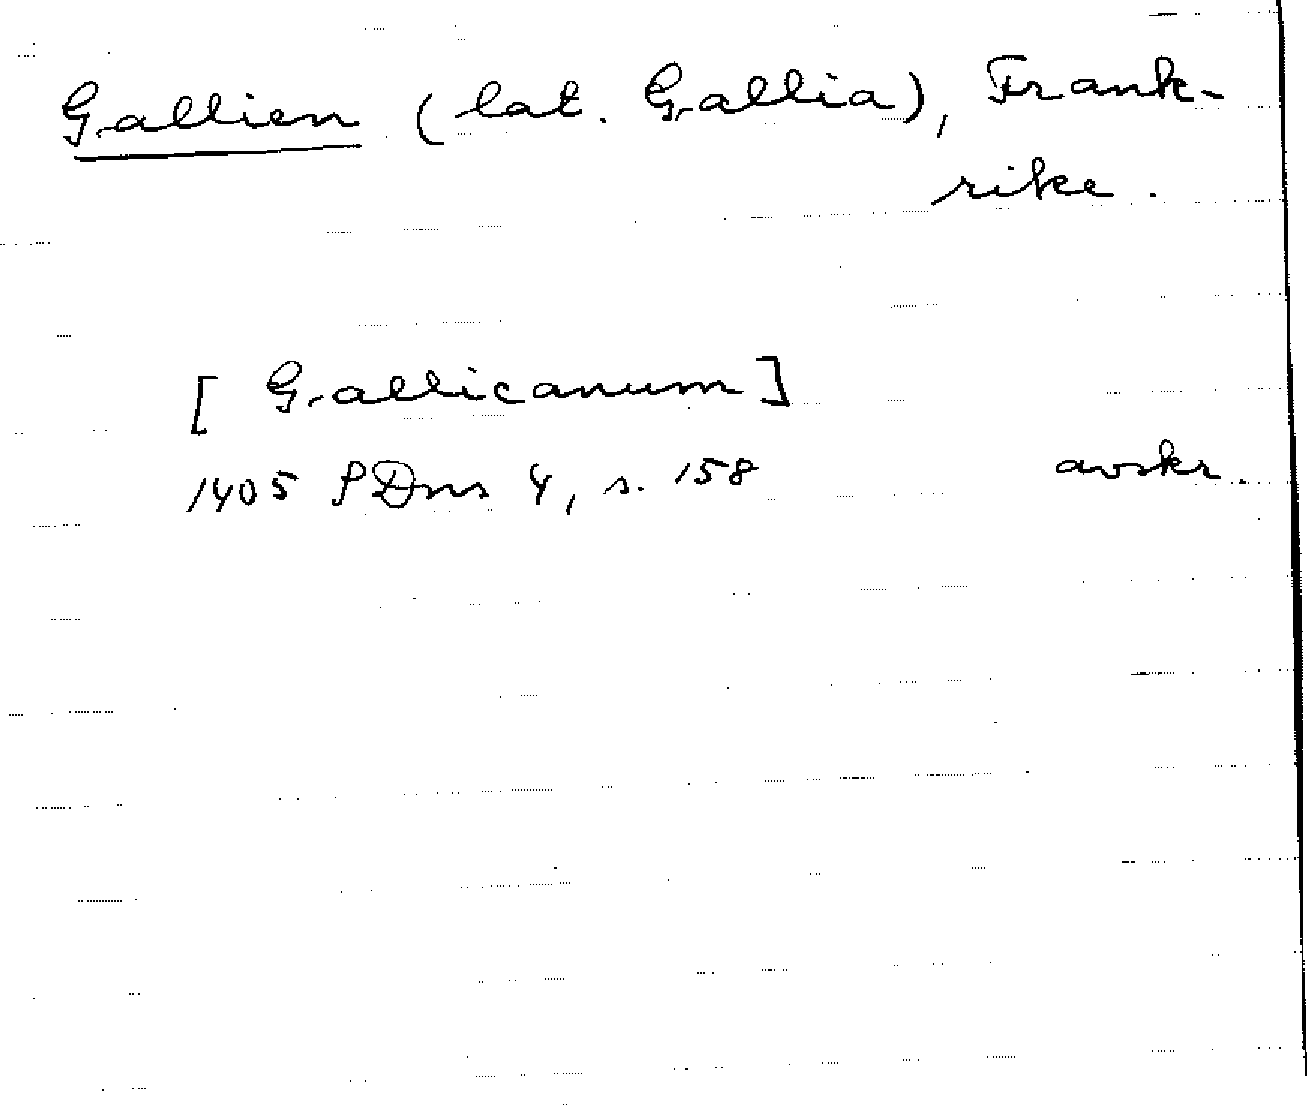 Gallien (lat. Gallia), Frank-
rike.
[Gallicanum]
1405 PDns 4, s. 158 avskr.